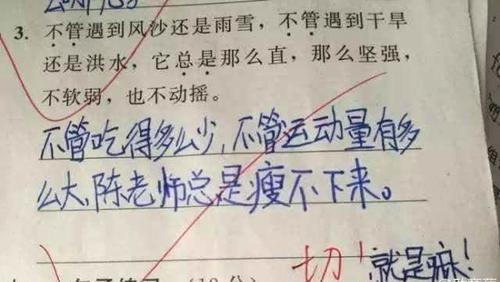 3. 不管遇到风沙还是雨雪，不管遇到干旱
还是洪水，它总是那么直，那么坚强，
不软弱，也不动摇。
不管吃得多么少,不管运动量有多
么大,陈老师总是瘦不下来。
切! 就是疯!